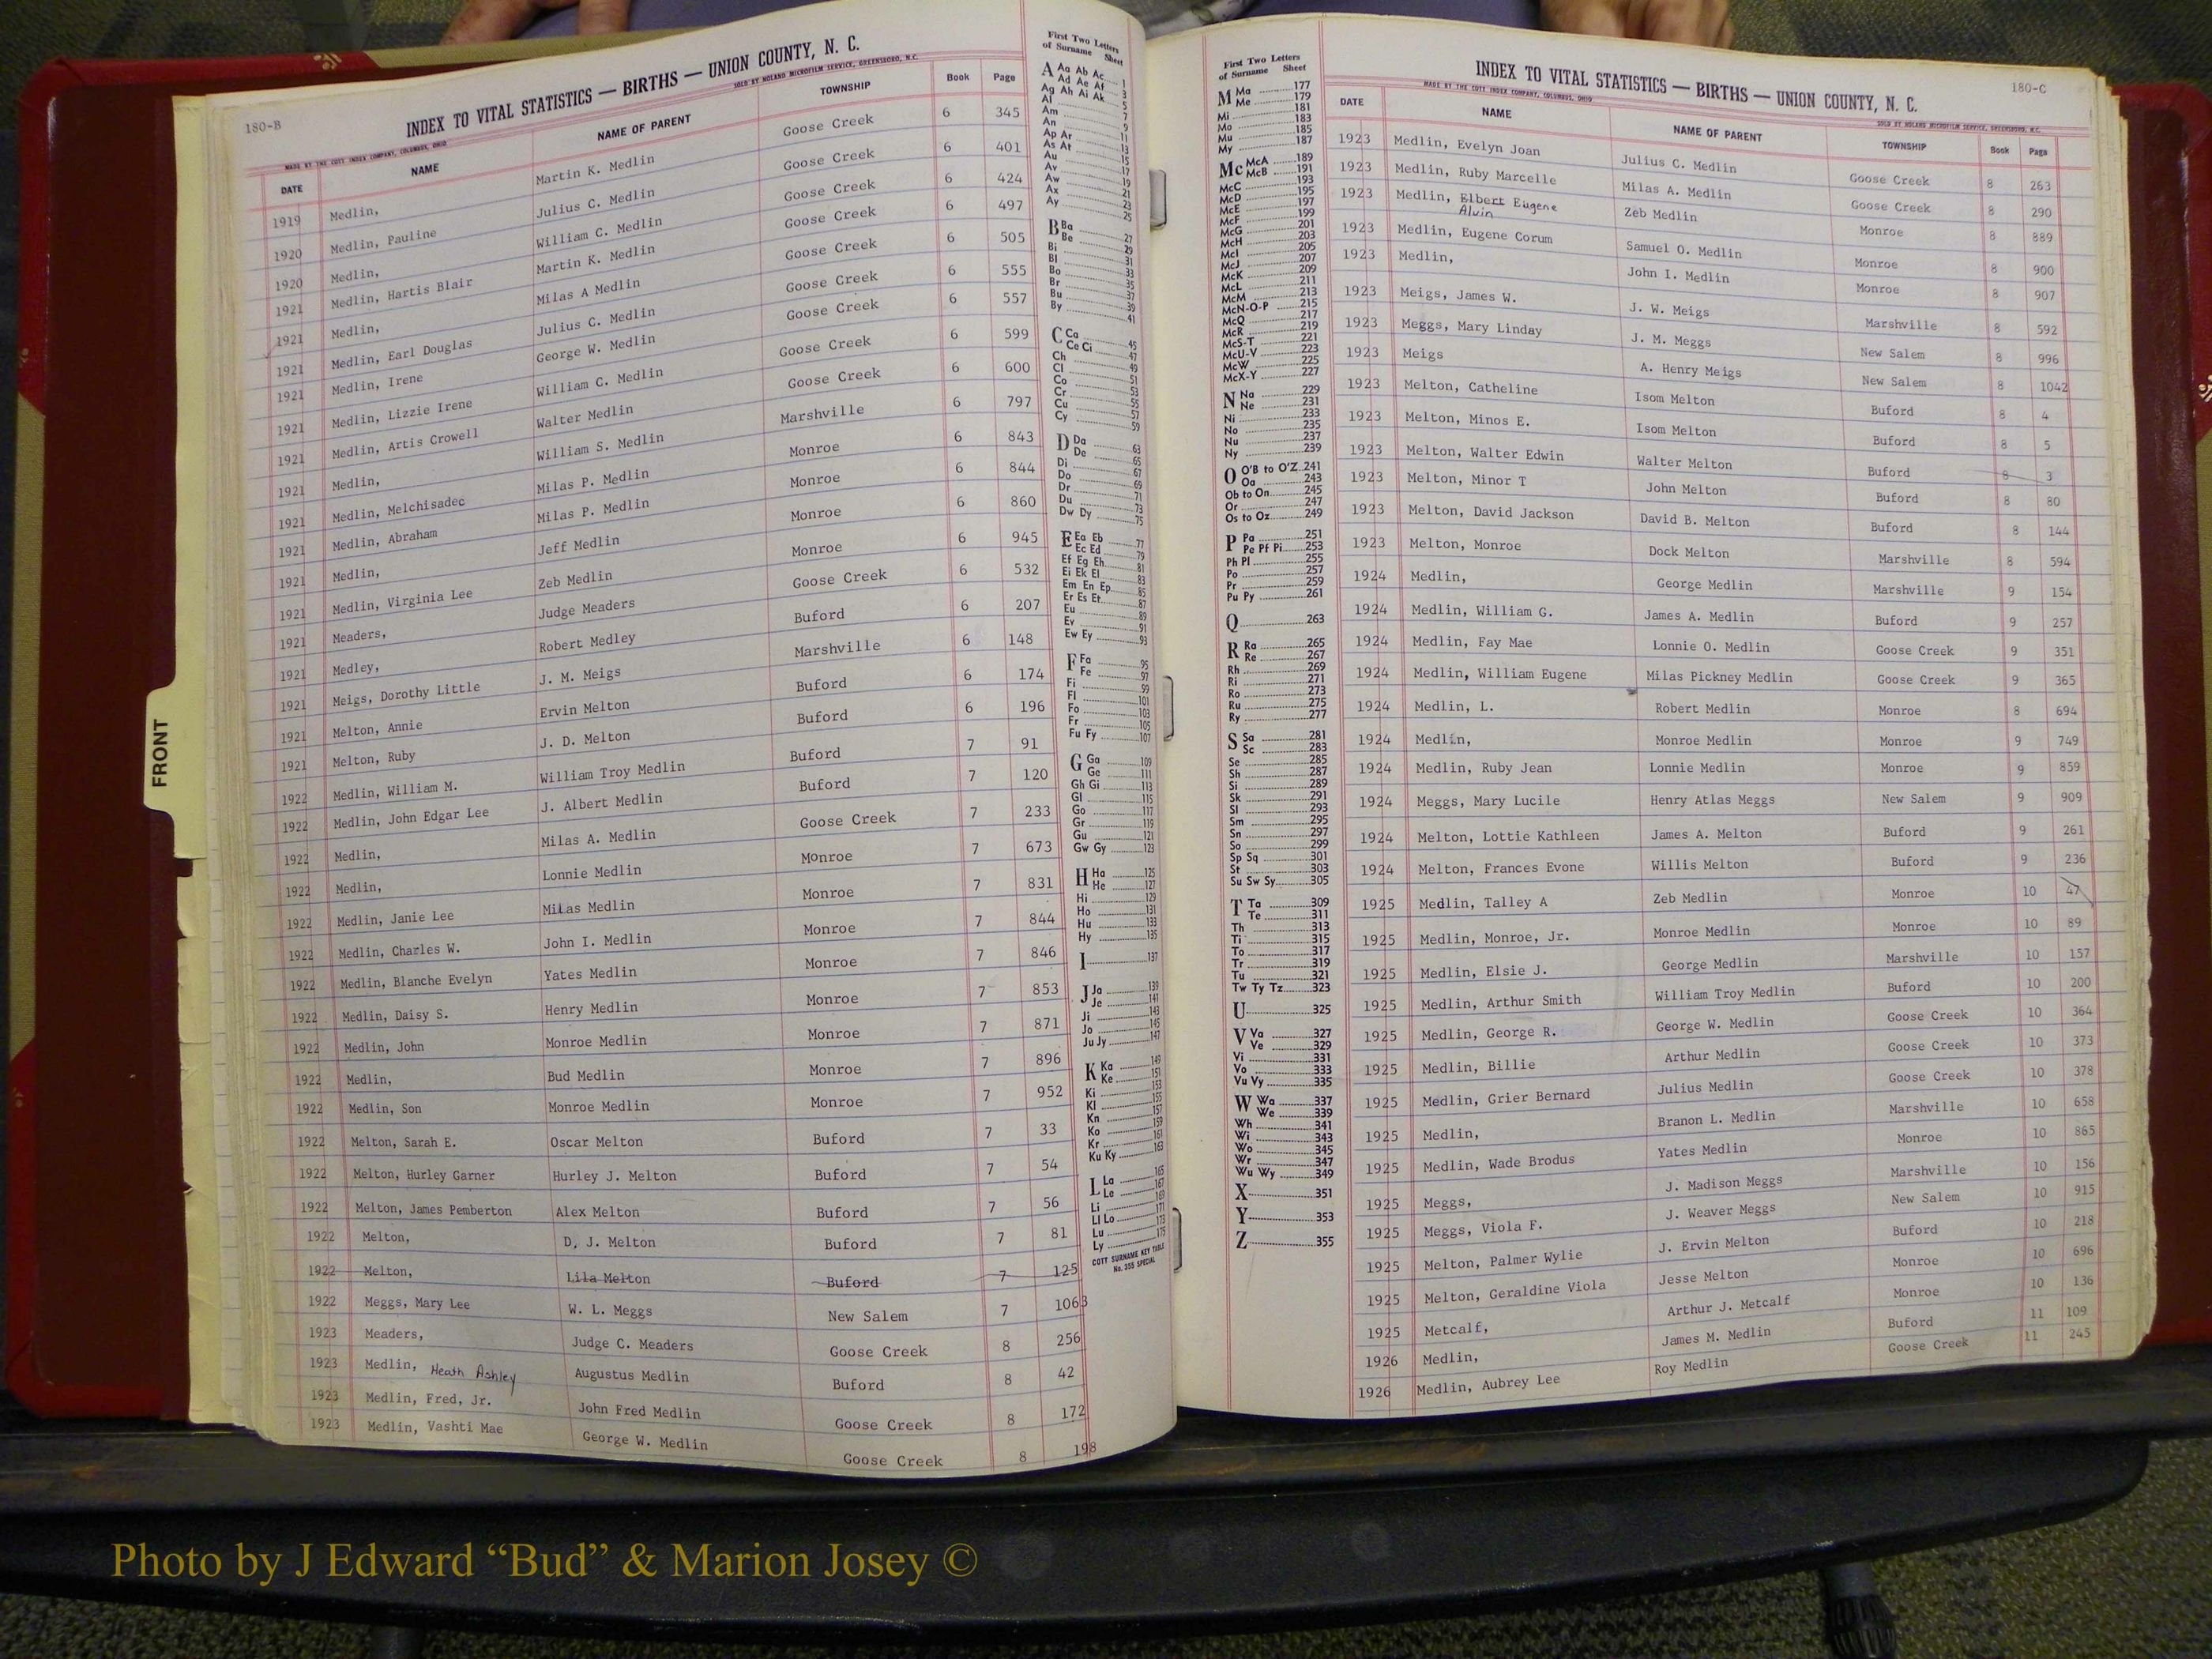 180-B
INDEX TO VITAL STATISTICS — BIRTHS — UNION COUNTY, N. C.
MADE BY THE COTT INDEX COMPANY, COLUMBUS, OHIO SOLD BY NOLAND MICROFILM SERVICE, GREENSBORO, N.C.
DATE NAME NAME OF PARENT TOWNSHIP Book Page
1919 Medlin, Martin K. Medlin Goose Creek 6 345
1920 Medlin, Pauline Julius C. Medlin Goose Creek 6 401
1920 Medlin, William C. Medlin Goose Creek 6 424
1921 Medlin, Hartis Blair Martin K. Medlin Goose Creek 6 497
1921 Medlin, Milas A Medlin Goose Creek 6 505
1921 Medlin, Earl Douglas Julius C. Medlin Goose Creek 6 555
1921 Medlin, Irene George W. Medlin Goose Creek 6 557
1921 Medlin, Lizzie Irene William C. Medlin Goose Creek 6 599
1921 Medlin, Artis Crowell Walter Medlin Goose Creek 6 600
1921 Medlin, William S. Medlin Marshville 6 797
1921 Medlin, Melchisadec Milas P. Medlin Monroe 6 843
1921 Medlin, Abraham Milas P. Medlin Monroe 6 844
1921 Medlin, Jeff Medlin Monroe 6 860
1921 Medlin, Virginia Lee Zeb Medlin Monroe 6 945
1921 Meaders, Judge Meaders Goose Creek 6 532
1921 Medley, Robert Medley Buford 6 207
1921 Meigs, Dorothy Little J. M. Meigs Marshville 6 148
1921 Melton, Annie Ervin Melton Buford 6 174
1921 Melton, Ruby J. D. Melton Buford 6 196
1922 Medlin, William M. William Troy Medlin Buford 7 91
1922 Medlin, John Edgar Lee J. Albert Medlin Buford 7 120
1922 Medlin, Milas A. Medlin Goose Creek 7 233
1922 Medlin, Lonnie Medlin Monroe 7 673
1922 Medlin, Janie Lee Milas Medlin Monroe 7 831
1922 Medlin, Charles W. John I. Medlin Monroe 7 844
1922 Medlin, Blanche Evelyn Yates Medlin Monroe 7 846
1922 Medlin, Daisy S. Henry Medlin Monroe 7 853
1922 Medlin, John Monroe Medlin Monroe 7 871
1922 Medlin, Bud Medlin Monroe 7 896
1922 Medlin, Son Monroe Medlin Monroe 7 952
1922 Melton, Sarah E. Oscar Melton Buford 7 33
1922 Melton, Hurley Garner Hurley J. Melton Buford 7 54
1922 Melton, James Pemberton Alex Melton Buford 7 56
1922 Melton, D. J. Melton Buford 7 81
1922 Melton, Lila Melton Buford 7 125
1922 Meggs, Mary Lee W. L. Meggs New Salem 7 1063
1923 Meaders, Judge C. Meaders Goose Creek 8 256
1923 Medlin, Heath Ashley Augustus Medlin Buford 8 42
1923 Medlin, Fred, Jr. John Fred Medlin Goose Creek 8 172
1923 Medlin, Vashti Mae George W. Medlin Goose Creek 8 198
First Two Letters
of Surname Sheet
A Aa Ab Ac 1
Ad Ae Af 3
Ag Ah Ai Ak 5
Al 7
Am 9
An 11
Ap Ar 13
As At 15
Au 17
Av 19
Aw 21
Ax 23
Ay 25
B Ba 27
Be 29
Bi 31
Bl 33
Bo 35
Br 37
Bu 39
By 41
C Ca 45
Ce Ci 47
Ch 49
Cl 51
Co 53
Cr 55
Cu 57
Cy 59
D Da 63
De 65
Di 67
Do 69
Dr 71
Du 73
Dw Dy 75
E Ea Eb 77
Ec Ed 79
Ef Eg Eh 81
Ei Ek El 83
Em En Ep 85
Er Es Et 87
Eu 89
Ev 91
Ew Ey 93
F Fa 95
Fe 97
Fi 99
Fl 101
Fo 103
Fr 105
Fu Fy 107
G Ga 109
Ge 111
Gh Gi 113
Gl 115
Go 117
Gr 119
Gu 121
Gw Gy 123
H Ha 125
He 127
Hi 129
Ho 131
Hu 133
Hy 135
I 137
J Ja 139
Je 141
Ji 143
Jo 145
Ju Jy 147
K Ka 149
Ke 151
Ki 153
Kl 155
Kn 157
Ko 159
Kr 161
Ku Ky 163
L La 165
Le 167
Li 169
Ll Lo 171
Lu 173
Ly 175
COTT SURNAME KEY TABLE
No. 355 SPECIAL
First Two Letters
of Surname Sheet
M Ma 177
Me 179
Mi 181
Mo 183
Mu 185
My 187
Mc McA 189
McB 191
McC 193
McD 195
McE 197
McF 199
McG 201
McH 203
McI 205
McJ 207
McK 209
McL 211
McM 213
McN-O-P 215
McQ 217
McR 219
McS-T 221
McU-V 223
McW 225
McX-Y 227
N Na 229
Ne 231
Ni 233
No 235
Nu 237
Ny 239
O O'B to O'Z 241
Oa 243
Ob to On 245
Or 247
Os to Oz 249
P Pa 251
Pe Pf Pi 253
Ph Pl 255
Po 257
Pr 259
Pu Py 261
Q 263
R Ra 265
Re 267
Rh 269
Ri 271
Ro 273
Ru 275
Ry 277
S Sa 281
Sc 283
Se 285
Sh 287
Si 289
Sk 291
Sl 293
Sm 295
Sn 297
So 299
Sp Sq 301
St 303
Su Sw Sy 305
T Ta 309
Te 311
Th 313
Ti 315
To 317
Tr 319
Tu 321
Tw Ty Tz 323
U 325
V Va 327
Ve 329
Vi 331
Vo 333
Vu Vy 335
W Wa 337
We 339
Wh 341
Wi 343
Wo 345
Wr 347
Wu Wy 349
X 351
Y 353
Z 355
180-C
INDEX TO VITAL STATISTICS — BIRTHS — UNION COUNTY, N. C.
MADE BY THE COTT INDEX COMPANY, COLUMBUS, OHIO SOLD BY NOLAND MICROFILM SERVICE, GREENSBORO, N.C.
DATE NAME NAME OF PARENT TOWNSHIP Book Page
1923 Medlin, Evelyn Joan Julius C. Medlin Goose Creek 8 263
1923 Medlin, Ruby Marcelle Milas A. Medlin Goose Creek 8 290
1923 Medlin, Elbert Eugene Zeb Medlin Monroe 8 889
Alvin
1923 Medlin, Eugene Corum Samuel O. Medlin Monroe 8 900
1923 Medlin, John I. Medlin Monroe 8 907
1923 Meigs, James W. J. W. Meigs Marshville 8 592
1923 Meggs, Mary Linday J. M. Meggs New Salem 8 996
1923 Meigs A. Henry Meigs New Salem 8 1042
1923 Melton, Catheline Isom Melton Buford 8 4
1923 Melton, Minos E. Isom Melton Buford 8 5
1923 Melton, Walter Edwin Walter Melton Buford 8 3
1923 Melton, Minor T John Melton Buford 8 80
1923 Melton, David Jackson David B. Melton Buford 8 144
1923 Melton, Monroe Dock Melton Marshville 8 594
1924 Medlin, George Medlin Marshville 9 154
1924 Medlin, William G. James A. Medlin Buford 9 257
1924 Medlin, Fay Mae Lonnie O. Medlin Goose Creek 9 351
1924 Medlin, William Eugene Milas Pickney Medlin Goose Creek 9 365
1924 Medlin, L. Robert Medlin Monroe 8 694
1924 Medlin, Monroe Medlin Monroe 9 749
1924 Medlin, Ruby Jean Lonnie Medlin Monroe 9 859
1924 Meggs, Mary Lucile Henry Atlas Meggs New Salem 9 909
1924 Melton, Lottie Kathleen James A. Melton Buford 9 261
1924 Melton, Frances Evone Willis Melton Buford 9 236
1925 Medlin, Talley A Zeb Medlin Monroe 10 47
1925 Medlin, Monroe, Jr. Monroe Medlin Monroe 10 89
1925 Medlin, Elsie J. George Medlin Marshville 10 157
1925 Medlin, Arthur Smith William Troy Medlin Buford 10 200
1925 Medlin, George R. George W. Medlin Goose Creek 10 364
1925 Medlin, Billie Arthur Medlin Goose Creek 10 373
1925 Medlin, Grier Bernard Julius Medlin Goose Creek 10 378
1925 Medlin, Branon L. Medlin Marshville 10 658
1925 Medlin, Wade Brodus Yates Medlin Monroe 10 865
1925 Meggs, J. Madison Meggs Marshville 10 156
1925 Meggs, Viola F. J. Weaver Meggs New Salem 10 915
1925 Melton, Palmer Wylie J. Ervin Melton Buford 10 218
1925 Melton, Geraldine Viola Jesse Melton Monroe 10 696
1925 Metcalf, Arthur J. Metcalf Monroe 10 136
1926 Medlin, James M. Medlin Buford 11 109
1926 Medlin, Aubrey Lee Roy Medlin Goose Creek 11 245
FRONT
Photo by J Edward “Bud” & Marion Josey ©